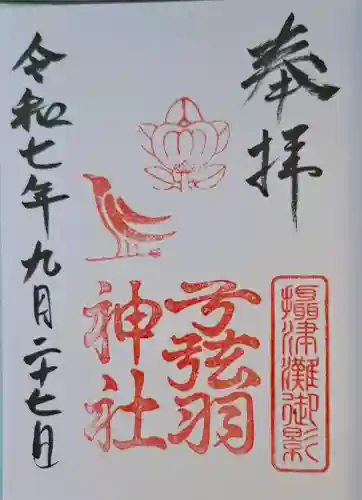 奉拝
攝津灘御影
弓弦羽
神社
令和七年九月二十七日